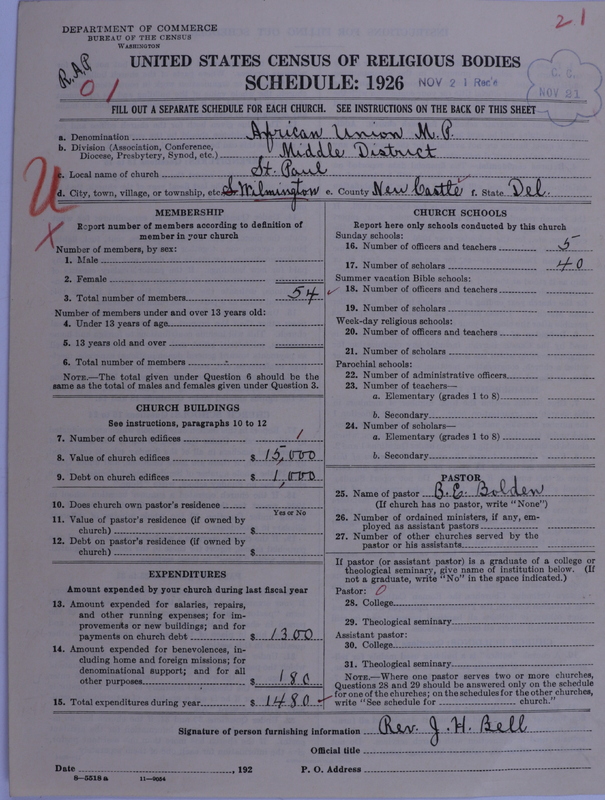 21
DEPARTMENT OF COMMERCE
BUREAU OF THE CENSUS
WASHINGTON
R.A.P
01
UNITED STATES CENSUS OF RELIGIOUS BODIES
SCHEDULE: 1926
NOV 21 Rec'd
C. C.
NOV 21
FILL OUT A SEPARATE SCHEDULE FOR EACH CHURCH. SEE INSTRUCTIONS ON THE BACK OF THIS SHEET
a. Denomination African Union M.P.
b. Division (Association, Conference, Diocese, Presbytery, Synod, etc.) Middle District
c. Local name of church St. Paul
d. City, town, village, or township, etc. S. Wilmington e. County New Castle f. State Del.
U
X
MEMBERSHIP
Report number of members according to definition of
member in your church
Number of members, by sex:
1. Male
2. Female
3. Total number of members 54
Number of members under and over 13 years old:
4. Under 13 years of age
5. 13 years old and over
6. Total number of members
NOTE.—The total given under Question 6 should be the
same as the total of males and females given under Question 3.
CHURCH BUILDINGS
See instructions, paragraphs 10 to 12
7. Number of church edifices 1
8. Value of church edifices $ 15,000
9. Debt on church edifices $ 1,000
10. Does church own pastor's residence
Yes or No
11. Value of pastor's residence (if owned by
church) $
12. Debt on pastor's residence (if owned by
church) $
EXPENDITURES
Amount expended by your church during last fiscal year
13. Amount expended for salaries, repairs,
and other running expenses; for im-
provements or new buildings; and for
payments on church debt $ 1300
14. Amount expended for benevolences, in-
cluding home and foreign missions; for
denominational support; and for all
other purposes $ 180
15. Total expenditures during year $ 1480
CHURCH SCHOOLS
Report here only schools conducted by this church
Sunday schools:
16. Number of officers and teachers 5
17. Number of scholars 40
Summer vacation Bible schools:
18. Number of officers and teachers
19. Number of scholars
Week-day religious schools:
20. Number of officers and teachers
21. Number of scholars
Parochial schools:
22. Number of administrative officers
23. Number of teachers—
a. Elementary (grades 1 to 8)
b. Secondary
24. Number of scholars—
a. Elementary (grades 1 to 8)
b. Secondary
PASTOR
25. Name of pastor B. E. Bolden
(If church has no pastor, write "None")
26. Number of ordained ministers, if any, em-
ployed as assistant pastors
27. Number of other churches served by the
pastor or his assistants
If pastor (or assistant pastor) is a graduate of a college or
theological seminary, give name of institution below. (If
not a graduate, write "No" in the space indicated.)
Pastor: 0
28. College
29. Theological seminary
Assistant pastor:
30. College
31. Theological seminary
NOTE.—Where one pastor serves two or more churches,
Questions 28 and 29 should be answered only on the schedule
for one of the churches; on the schedules for the other churches,
write "See schedule for church."
Signature of person furnishing information Rev. J. H. Bell
Official title
Date , 192 P. O. Address
8—5518 a 11—9054